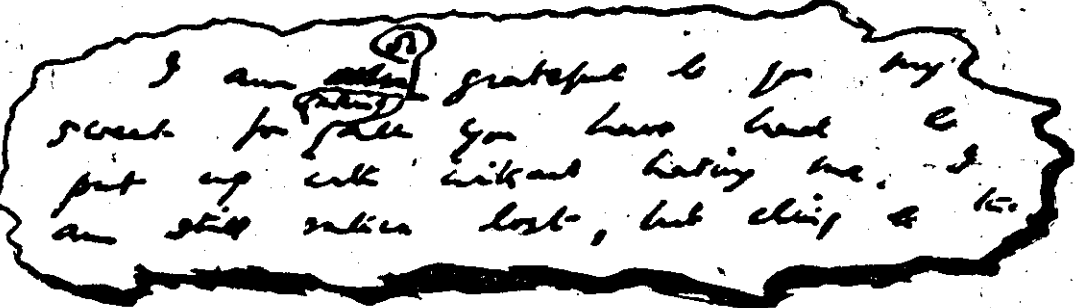 I am grateful to you my
sweet for all you have had to
put up with without hating me. I
am still rather lost, but cling to the